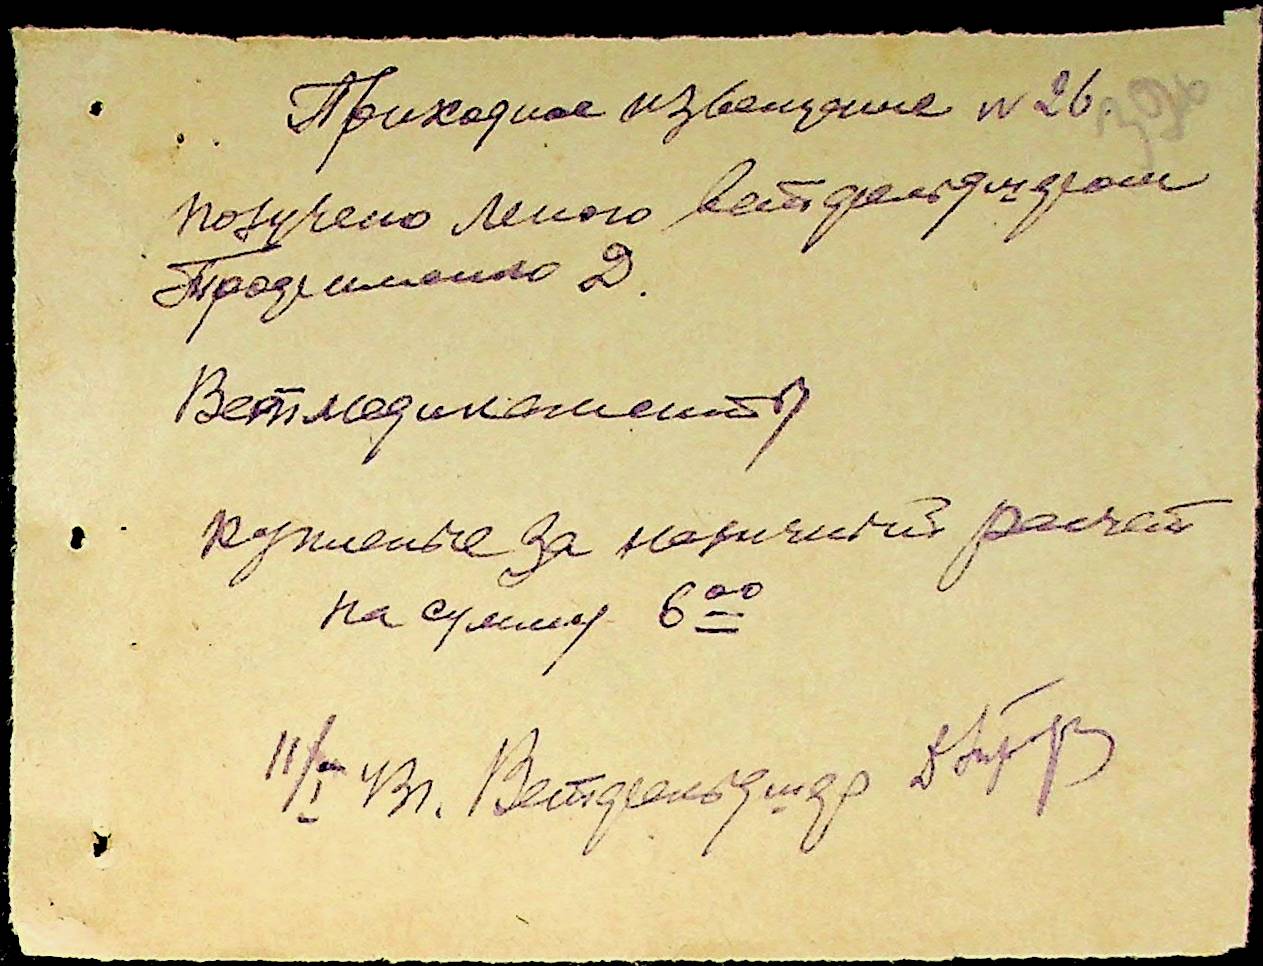 Приходное извещение № 26.
получено мною ветфельдшером
Трофименко Д.
Ветмедикаменты
купленые за наличный расчет
на сумму 6 00
11/I 43 г. Ветфельдшер